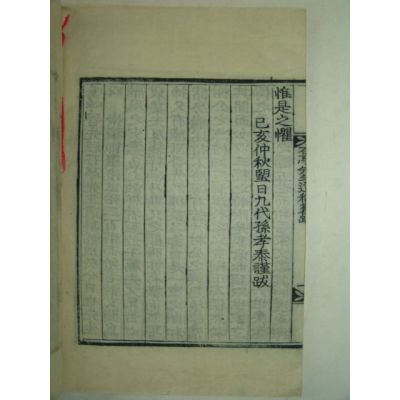 惟是之懼
己亥仲秋朢日九代孫孝泰謹跋